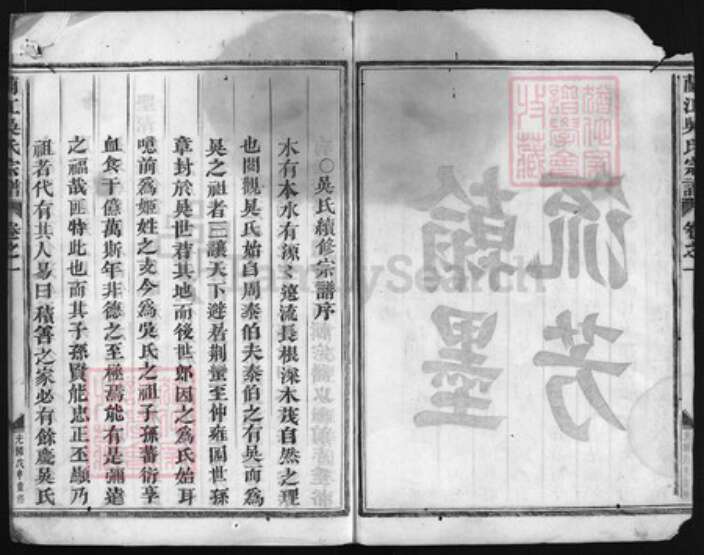 蘭江吳氏宗譜
卷之一
流芳
翰墨
趙氏家譜學會收藏
FamilySearch
○吳氏續修宗譜序
木有本水有源源遠流長根深木茂自然之理
也閱觀吳氏始自周泰伯夫泰伯之有吳而為
吳之祖者三讓天下避若荆蠻至仲雍國世孫
章封於吳世君其地而後世郎因之為氏始耳
噫前為姬姓之支今為吳氏之祖子孫蕃衍享
血食于億萬斯年非德之至極焉能有是彌遠
之福哉匪特此也而其子孫賢能忠正丕顯乃
祖者代有其人易曰積善之家必有餘慶吳氏
蘭江吳氏宗譜
卷之一